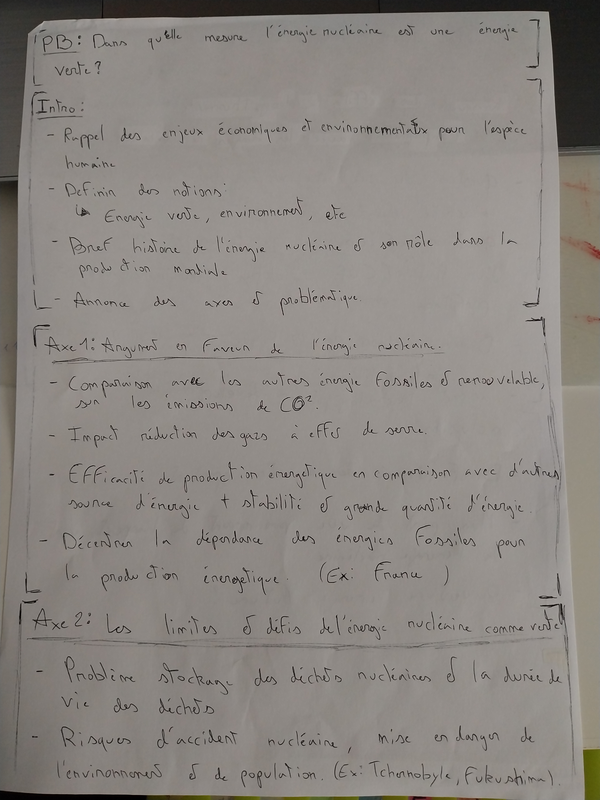 PB: Dans qu'elle mesure l'énergie nucléaire est une énergie
verte?
Intro:
- Rappel des enjeux économiques et environnementaux pour l'espèce
humaine
- Definir des notions:
↳ Energie verte, environnement, etc
- Bref histoire de l'énergie nucléaire et son rôle dans la
production mondiale
- Annonce des axes et problématique.
Axe 1: Argument en Faveur de l'énergie nucléaire.
- Comparaison avec les autres énergie Fossiles et renouvelable,
sur les émissions de CO².
- Impact réduction des gazs à effet de serre.
- Efficacité de production énergetique en comparaison avec d'autres
source d'énergie + stabilité et grande quantité d'énergie.
- Décentrer la dépendance des énergies Fossiles pour
la production énergetique. (Ex: France )
Axe 2: Les limites et défis de l'énergie nucléaire comme verte
- Problème stockage des déchets nucléaires et la durée de
vie des déchets
- Risques d'accident nucléaire, mise en danger de
l'environnement et de population. (Ex: Tchernobyle, Fukushima).